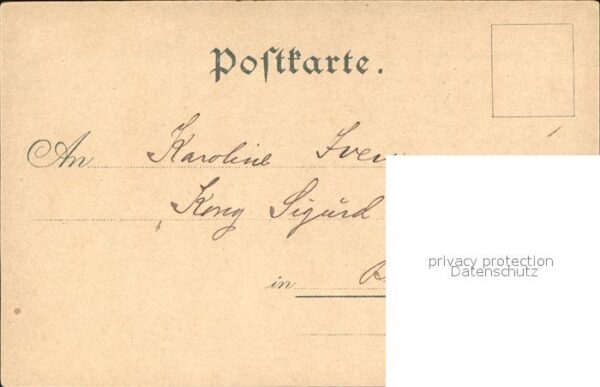 Postkarte.
An Karoline
Kong Sigurd
privacy protection
Datenschutz
in